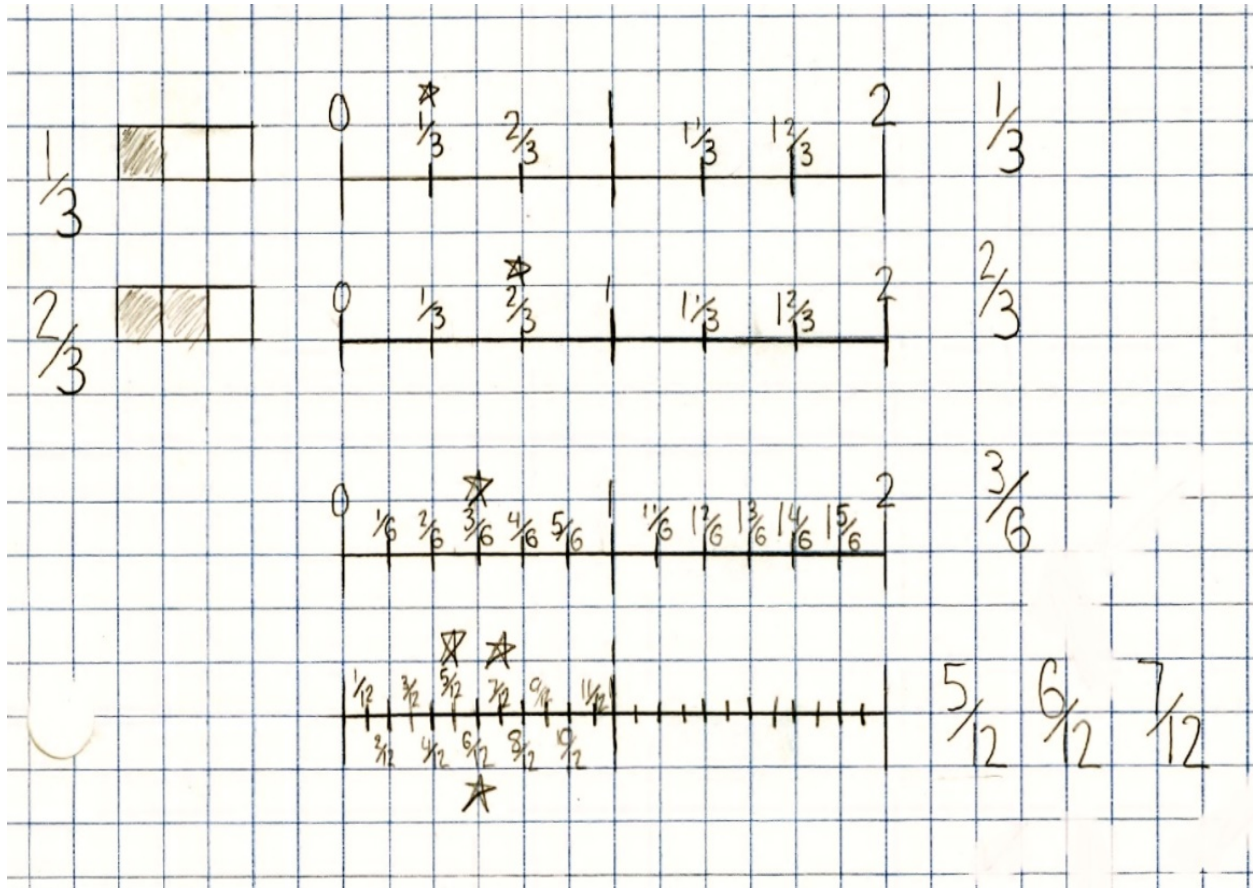 1/3 0 1/3 2/3 1 1 1/3 1 2/3 2 1/3
2/3 0 1/3 2/3 1 1 1/3 1 2/3 2 2/3
0 1/6 2/6 3/6 4/6 5/6 1 1 1/6 1 2/6 1 3/6 1 4/6 1 5/6 2 3/6
1/12 3/12 5/12 7/12 9/12 11/12 5/12 6/12 7/12
2/12 4/12 6/12 8/12 10/12